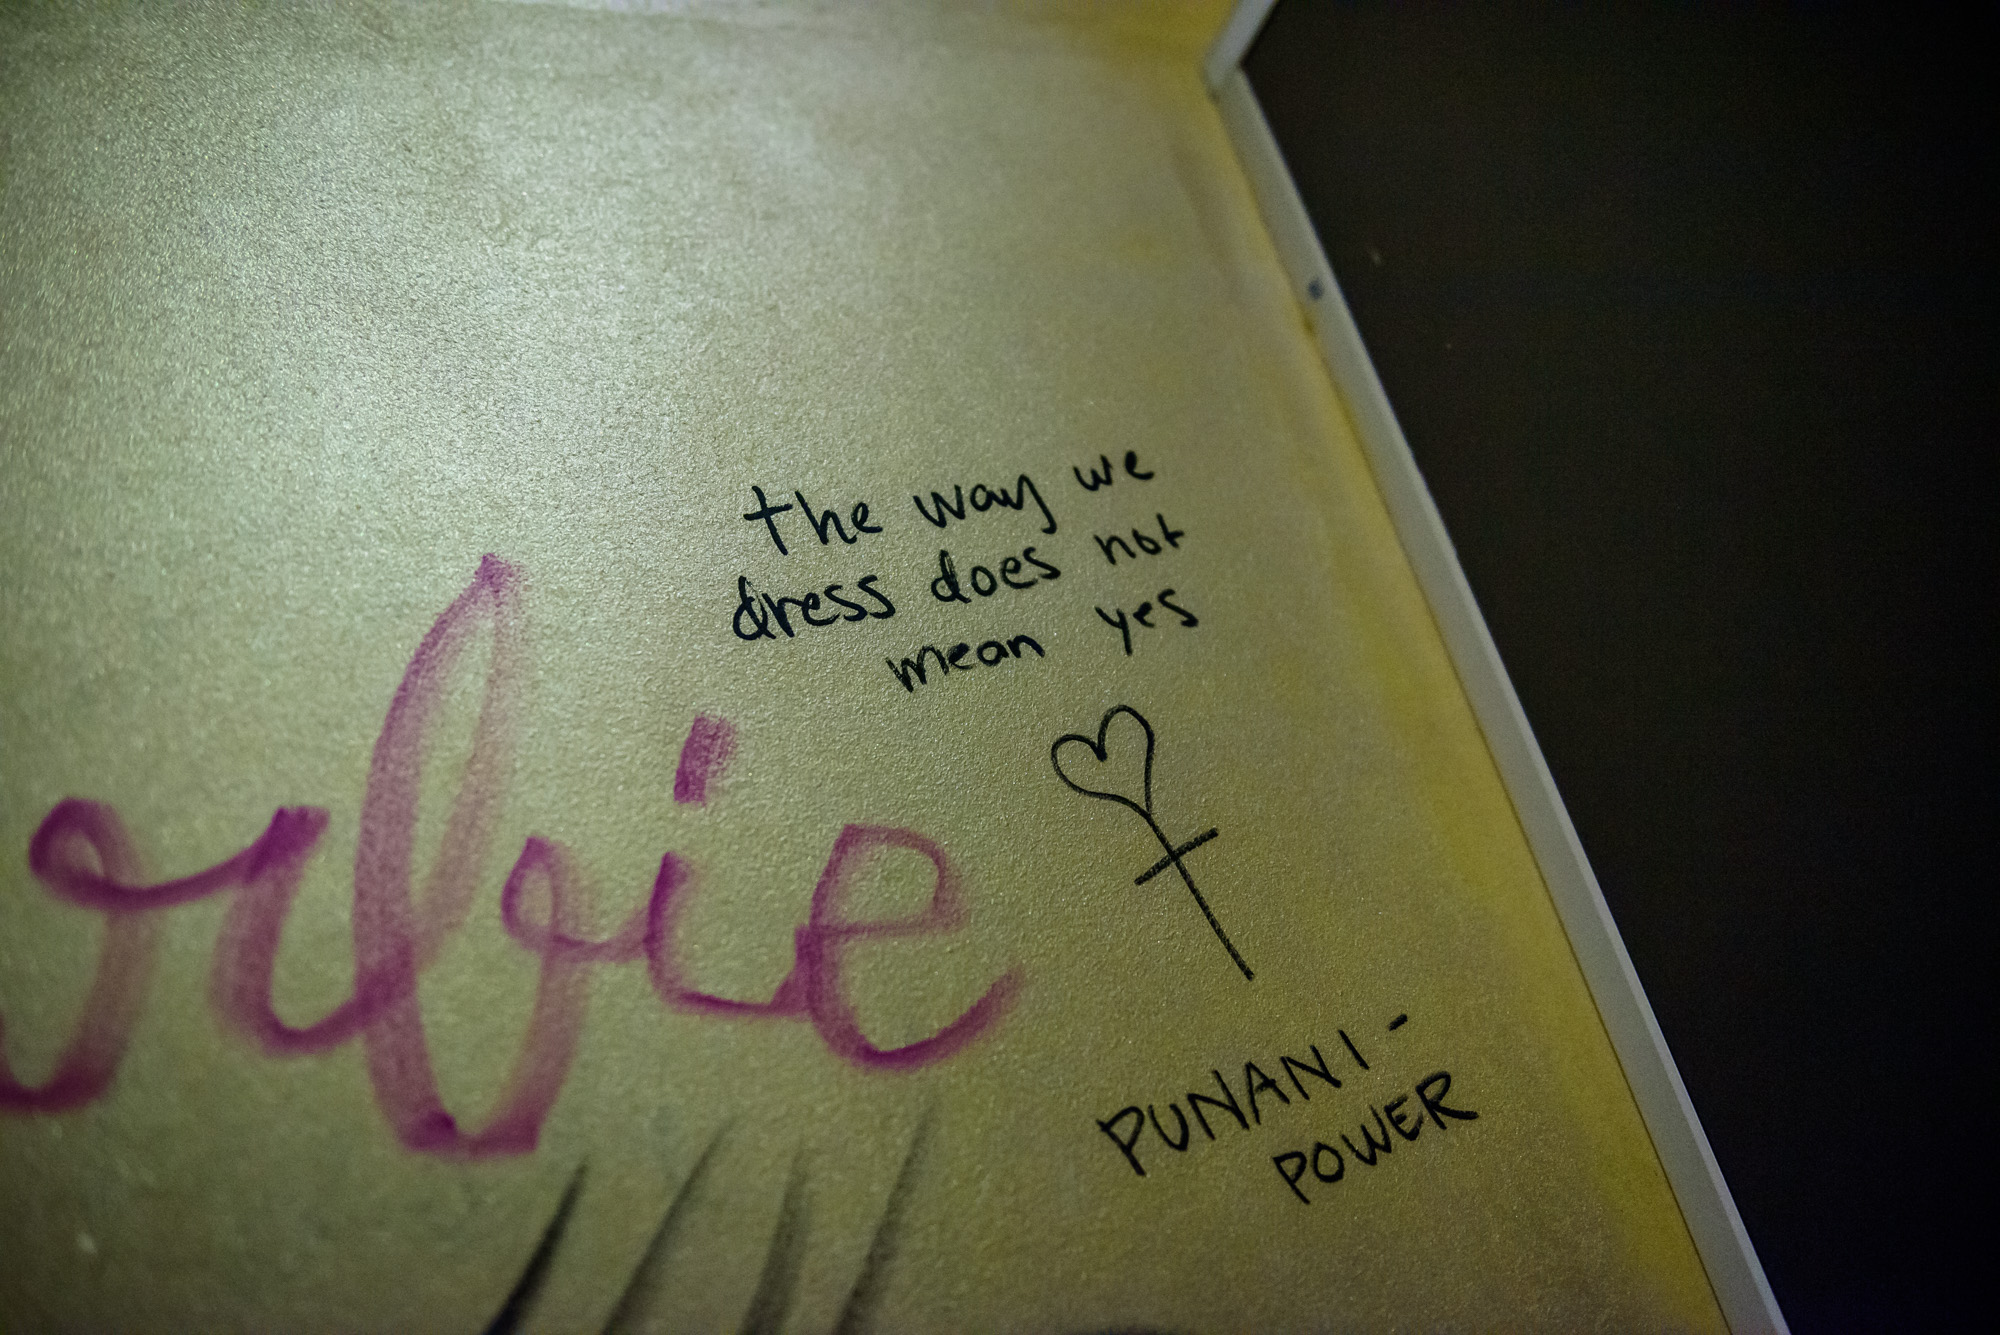 the way we
dress does not
mean yes
orbie
PUNANI-
POWER